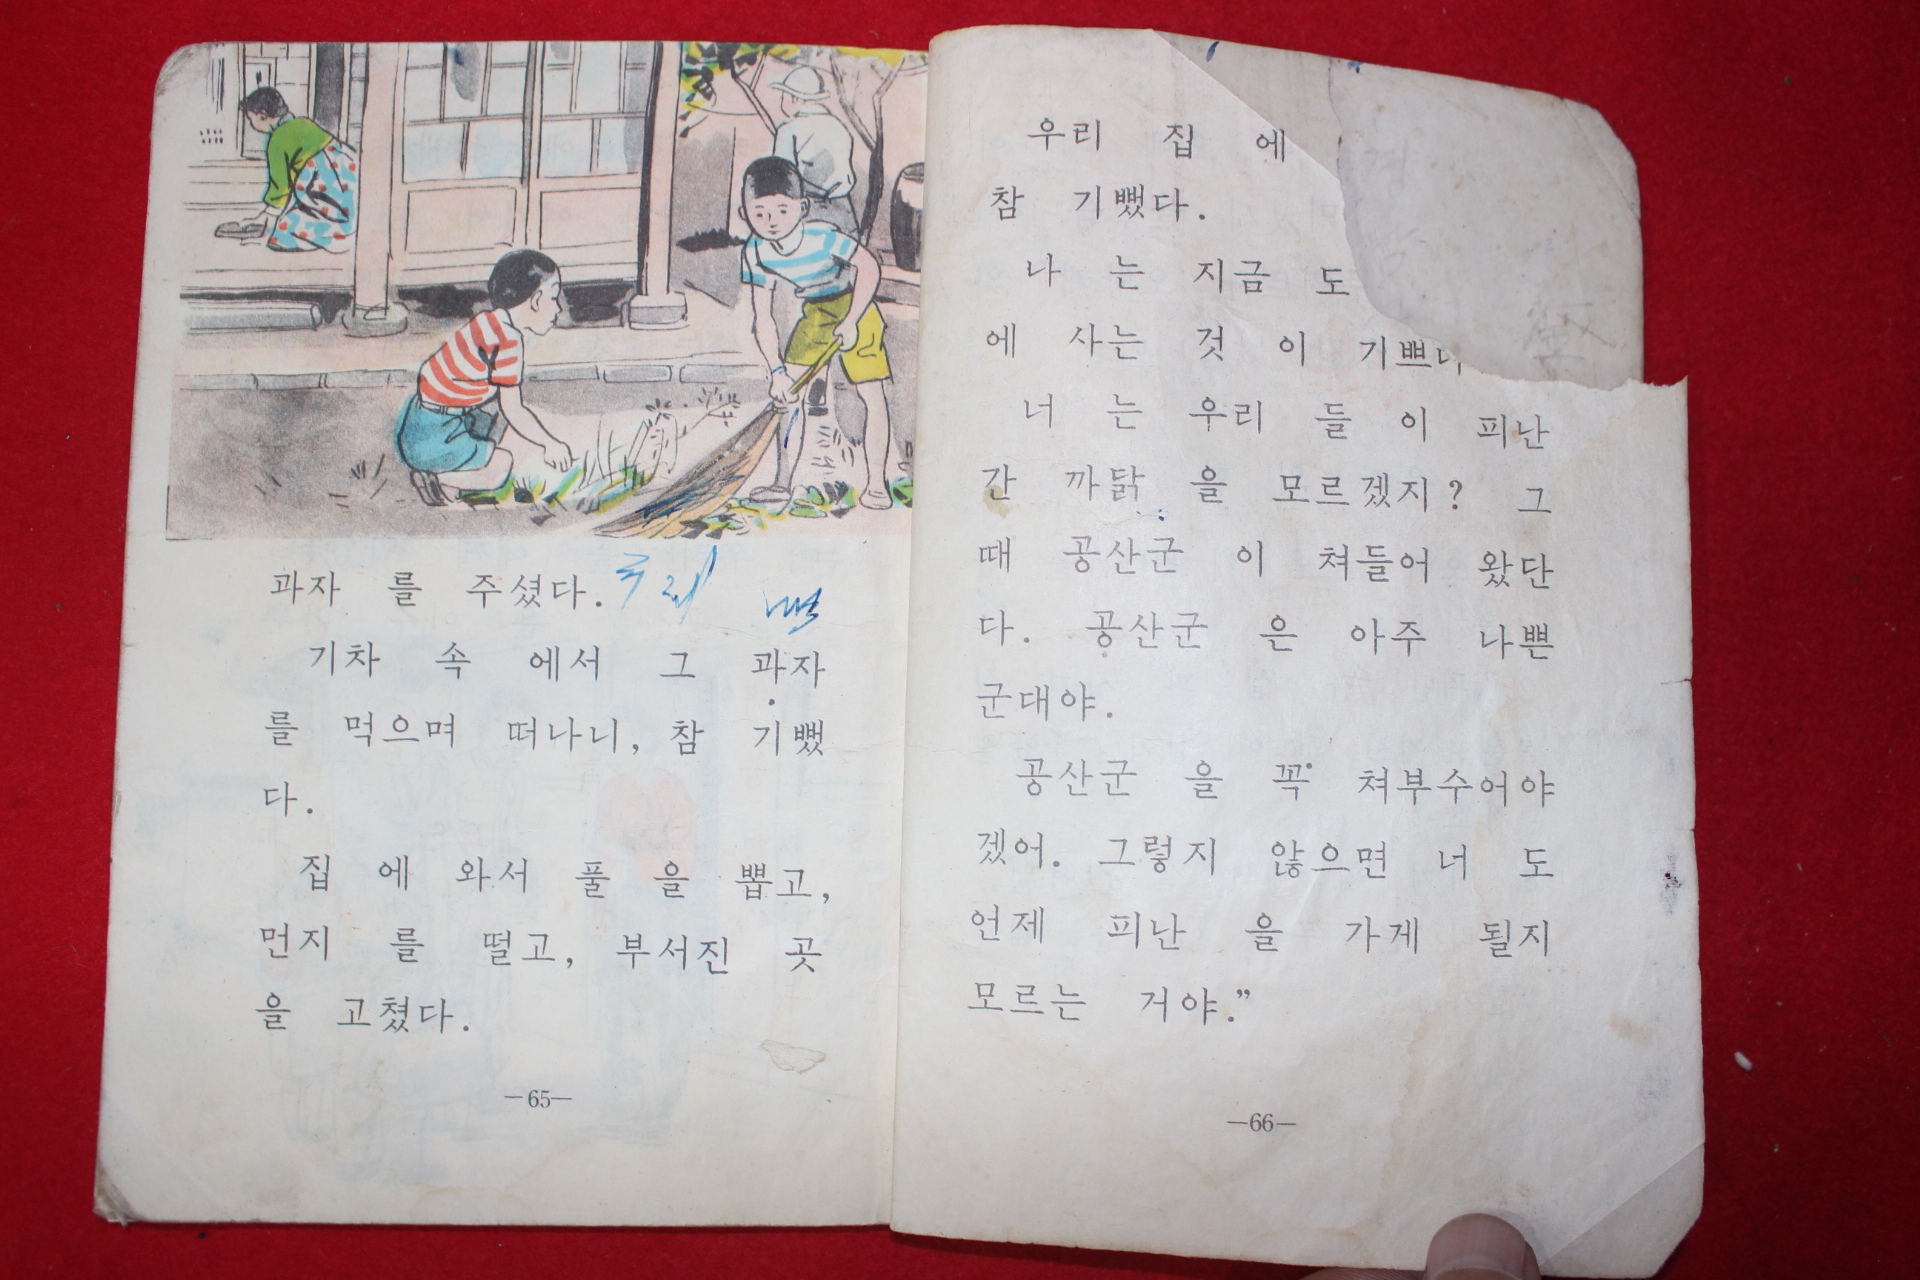 과자 를 주셨다.
기차 속 에서 그 과자
를 먹으며 떠나니, 참 기뻤
다.
집 에 와서 풀 을 뽑고,
먼지 를 떨고, 부서진 곳
을 고쳤다.
—65—
우리 집 에
참 기뻤다.
나 는 지금 도
에 사는 것 이
너 는 우리 들 이 피난
간 까닭 을 모르겠지? 그
때 공산군 이 쳐들어 왔단
다. 공산군 은 아주 나쁜
군대야.
공산군 을 꼭 쳐부수어야
겠어. 그렇지 않으면 너 도
언제 피난 을 가게 될지
모르는 거야.”
—66—